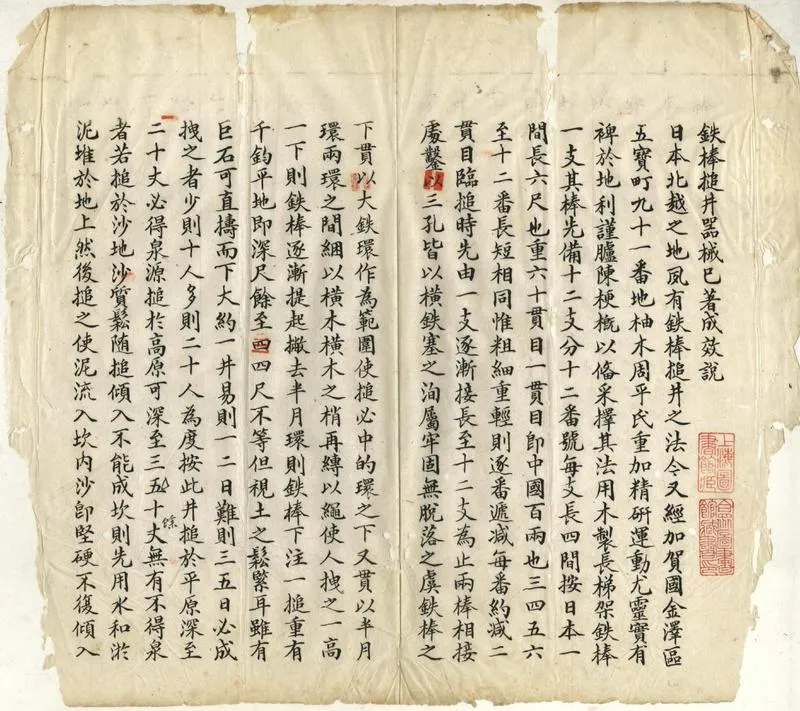 鉄棒搥井器械已著成效說
日本北越之地夙有鉄棒搥井之法今又經加賀國金澤區
五寶町九十一番地柚木周平氏重加精研運動尤靈實有
裨於地利謹臚陳梗概以俻采擇其法用木製長梯架鉄棒
一支其棒先備十二支分十二番號每支長四間按日本一
間長六尺也重六十貫目一貫目卽中國百兩也三四五六
至十二番長短相同惟粗細重輕則逐番遞減每番約减二
貫目臨搥時先由一支逐漸接長至十二支為止兩棒相接
處鑿以三孔皆以橫鉄塞之洵屬牢固無脫落之虞鉄棒之
下貫以大鉄環作為範圍使搥必中的環之下又貫以半月
環兩環之間綑以橫木橫木之梢再縳以繩使人拽之一高
一下則鉄棒逐漸提起撤去半月環則鉄棒下注一搥重有
千鈞平地即深尺餘至四四尺不等但視土之鬆緊耳雖有
巨石可直擣而下大約一井易則一二日難則三五日必成
拽之者少則十人多則二十人為度按此井搥於平原深至
二十丈必得泉源搥於高原可深至三五十丈餘無有不得泉
者若搥於沙地沙質鬆随搥傾入不能成坎則先用水和淤
泥堆於地上然後搥之使泥流入坎内沙卽堅硬不復傾入
上海圖
書館藏